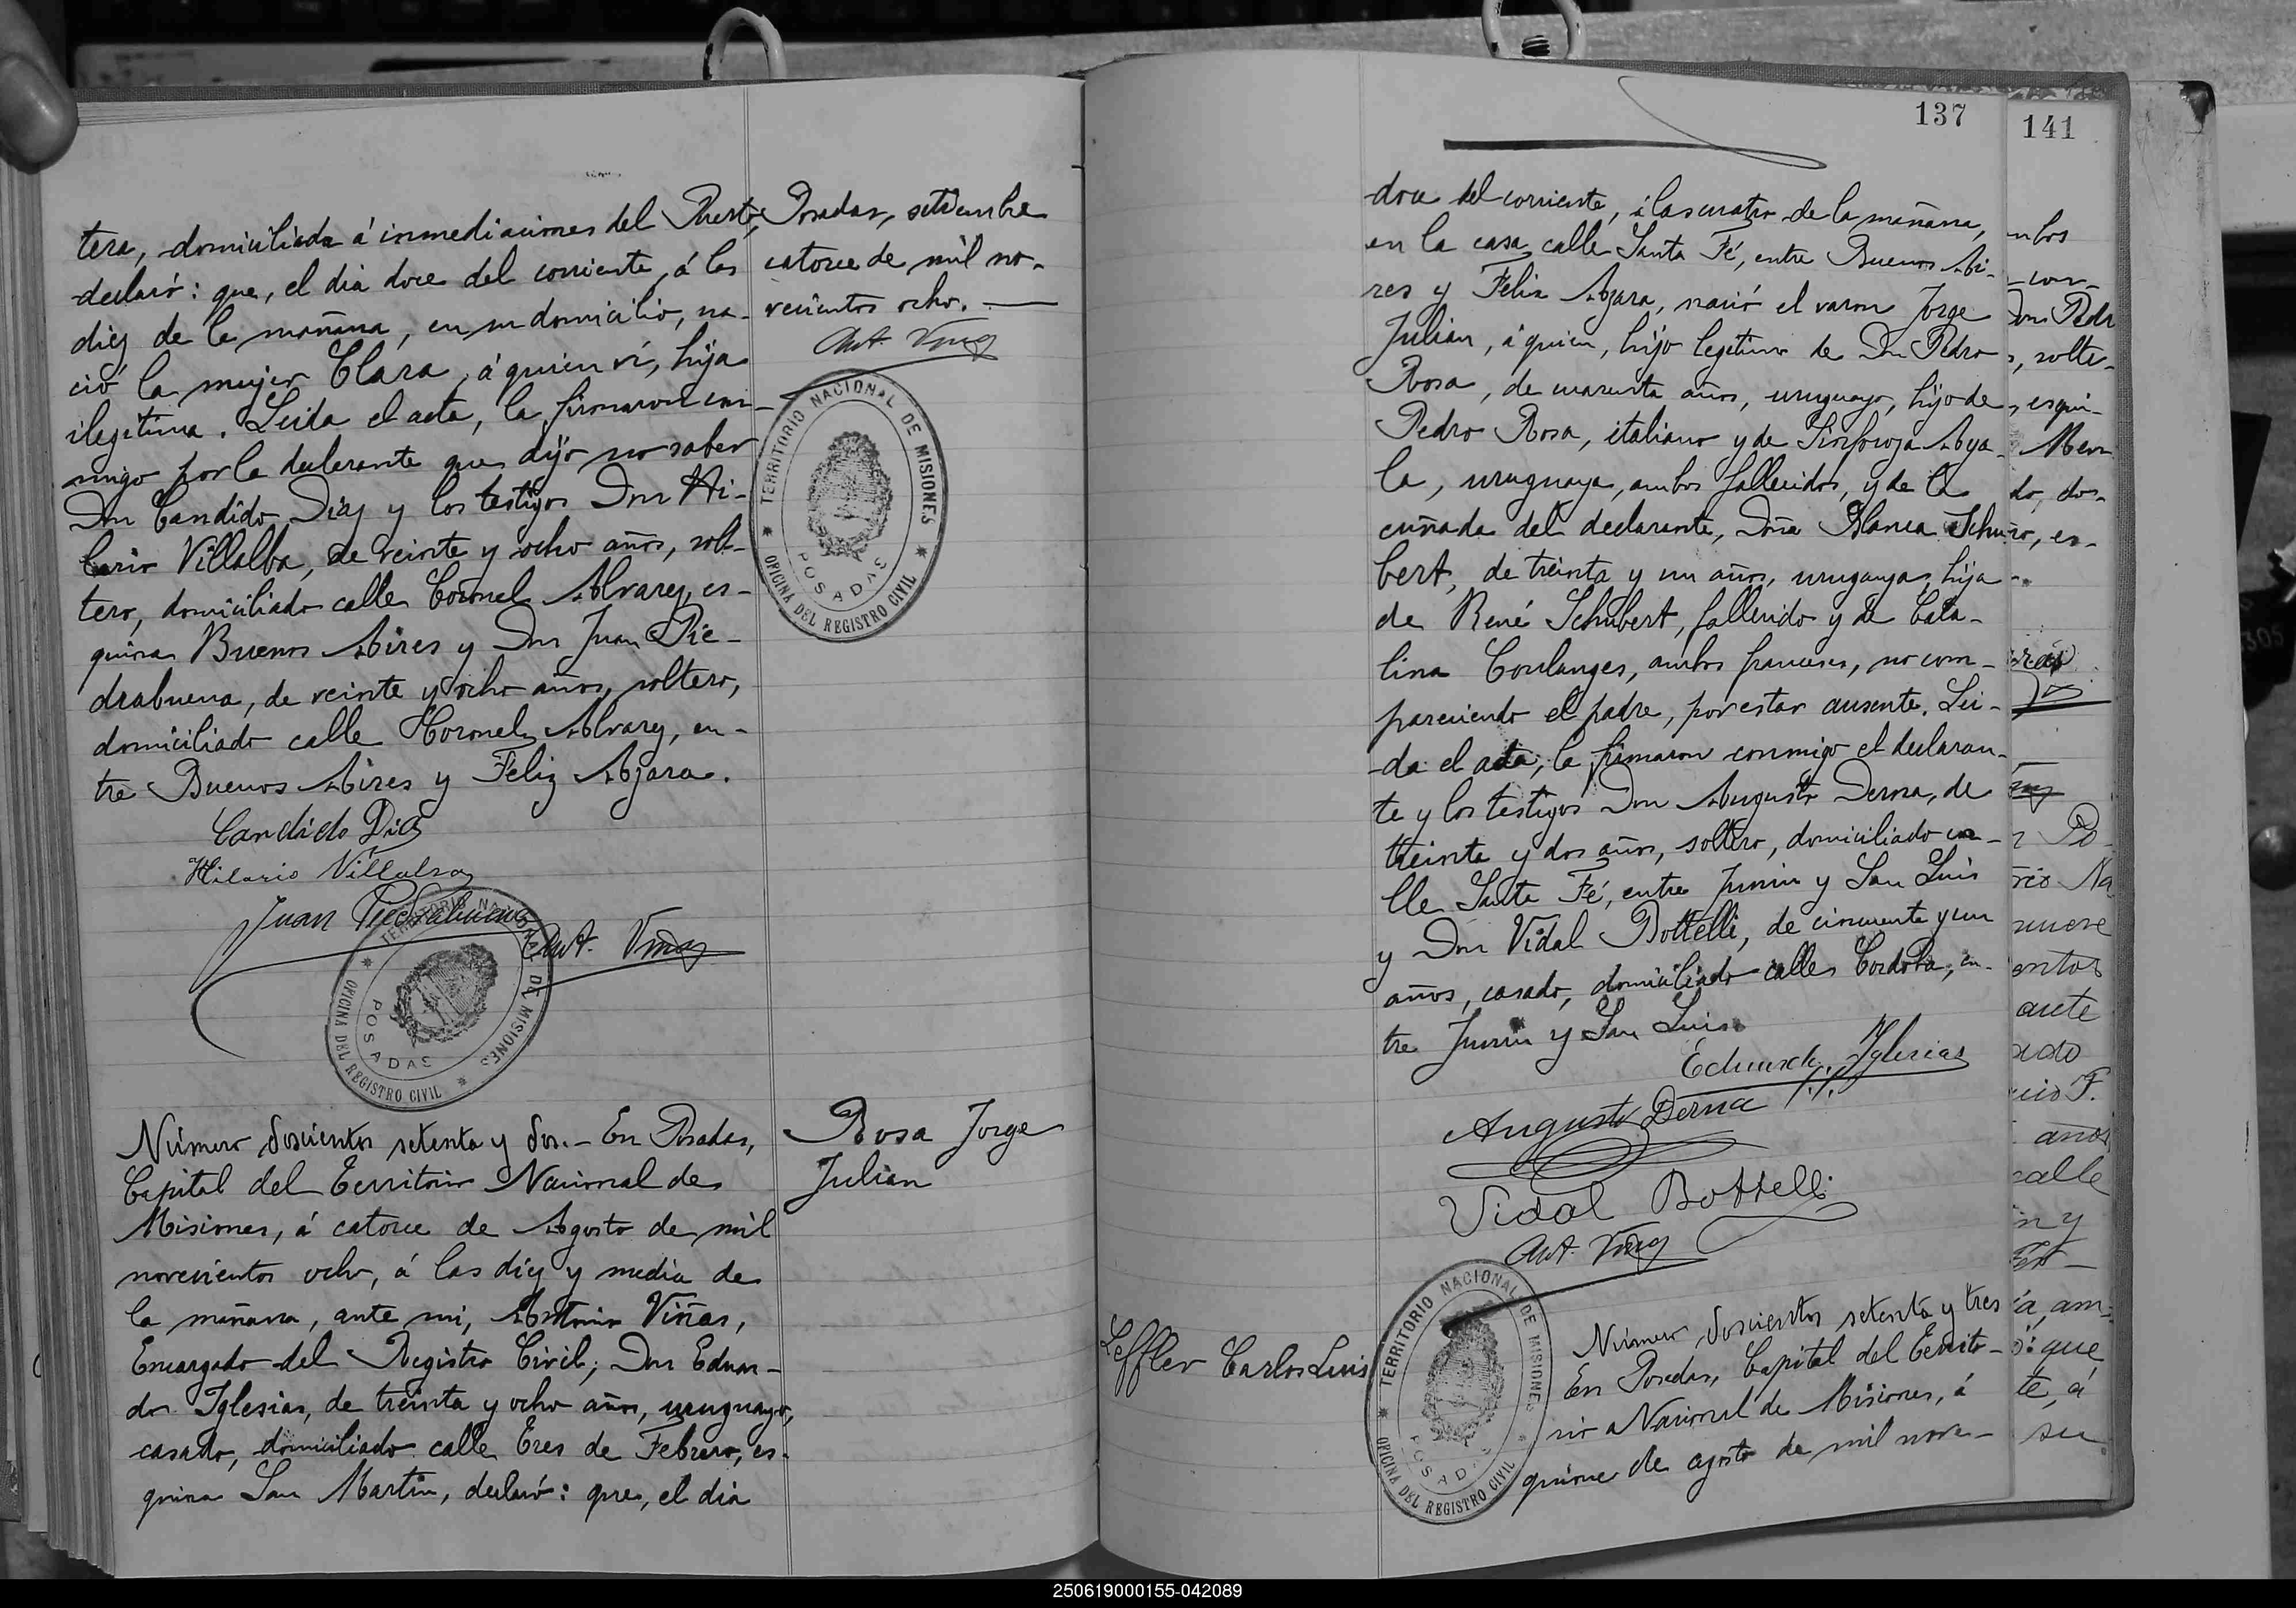 tera, domiciliada á inmediaciones del Puerto,
declaró: que, el dia doce del corriente, á las
diez de la mañana, en su domicilio, na-
ció la mujer Clara, á quien ví, hija
ilegítima. Leida el acta, la firmaron con-
migo por la declarante que dijo no saber
Don Candido Diaz y los testigos Don Hi-
lario Villalba, de veinte y ocho años, sol-
tero, domiciliado calle Coronel Alvarez, es-
quina Buenos Aires y Don Juan Pie-
drabuena, de veinte y ocho años, soltero,
domiciliado calle Coronel Alvarez, en-
tre Buenos Aires y Feliz Azara.
Candido Diaz
Hilario Villalba
Juan Piedrabuena
Ant. Viñas
TERRITORIO NACIONAL DE MISIONES
POSADAS
OFICINA DEL REGISTRO CIVIL
Posadas, setiembre
catorce de mil no-
vecientos ocho.
Ant. Viñas
TERRITORIO NACIONAL DE MISIONES
POSADAS
OFICINA DEL REGISTRO CIVIL
Rosa Jorge
Julian
Número doscientos setenta y dos.- En Posadas,
Capital del Territorio Nacional de
Misiones, á catorce de Agosto de mil
novecientos ocho, á las diez y media de
la mañana, ante mi, Antonio Viñas,
Encargado del Registro Civil; Don Eduar-
do Iglesias, de treinta y ocho años, uruguayo,
casado, domiciliado calle Tres de Febrero, es-
quina San Martin, declaró: que, el dia
137
doce del corriente, á las cuatro de la mañana,
en la casa calle Santa Fé, entre Buenos Ai-
res y Feliz Azara, nació el varon Jorge
Julian, á quien, hijo legítimo de Don Pedro
Rosa, de cuarenta años, uruguayo, hijo de
Pedro Rosa, italiano y de Sinforoza Aya-
la, uruguaya, ambos fallecidos, y de la
cuñada del declarante, Doña Blanca Schu-
bert, de treinta y un años, uruguaya, hija
de René Schubert, fallecido y de Cata-
lina Coulanges, ambos franceses, no com-
pareciendo el padre, por estar ausente. Lei-
da el acta, la firmaron conmigo el declaran-
te y los testigos Don Augusto Derna, de
treinta y dos años, soltero, domiciliado ca-
lle Santa Fé, entre Junin y San Luis
y Don Vidal Bottelli, de cincuenta y un
años, casado, domiciliado calle Cordoba, en-
tre Junin y San Luis.
Eduardo Iglesias
Augusto Derna
Vidal Bottelli
Ant. Viñas
TERRITORIO NACIONAL DE MISIONES
POSADAS
OFICINA DEL REGISTRO CIVIL
Leffler Carlos Luis
Número doscientos setenta y tres
En Posadas, Capital del Territo-
rio Nacional de Misiones, á
quince de agosto de mil nove-
141
mbos
con-
Don Pedr
, solte-
, esqui-
do, dos-
ro, es-
nueve
entos
ante
años
calle
n y
á, am-
ó: que
te, á
su
250619000155-042089